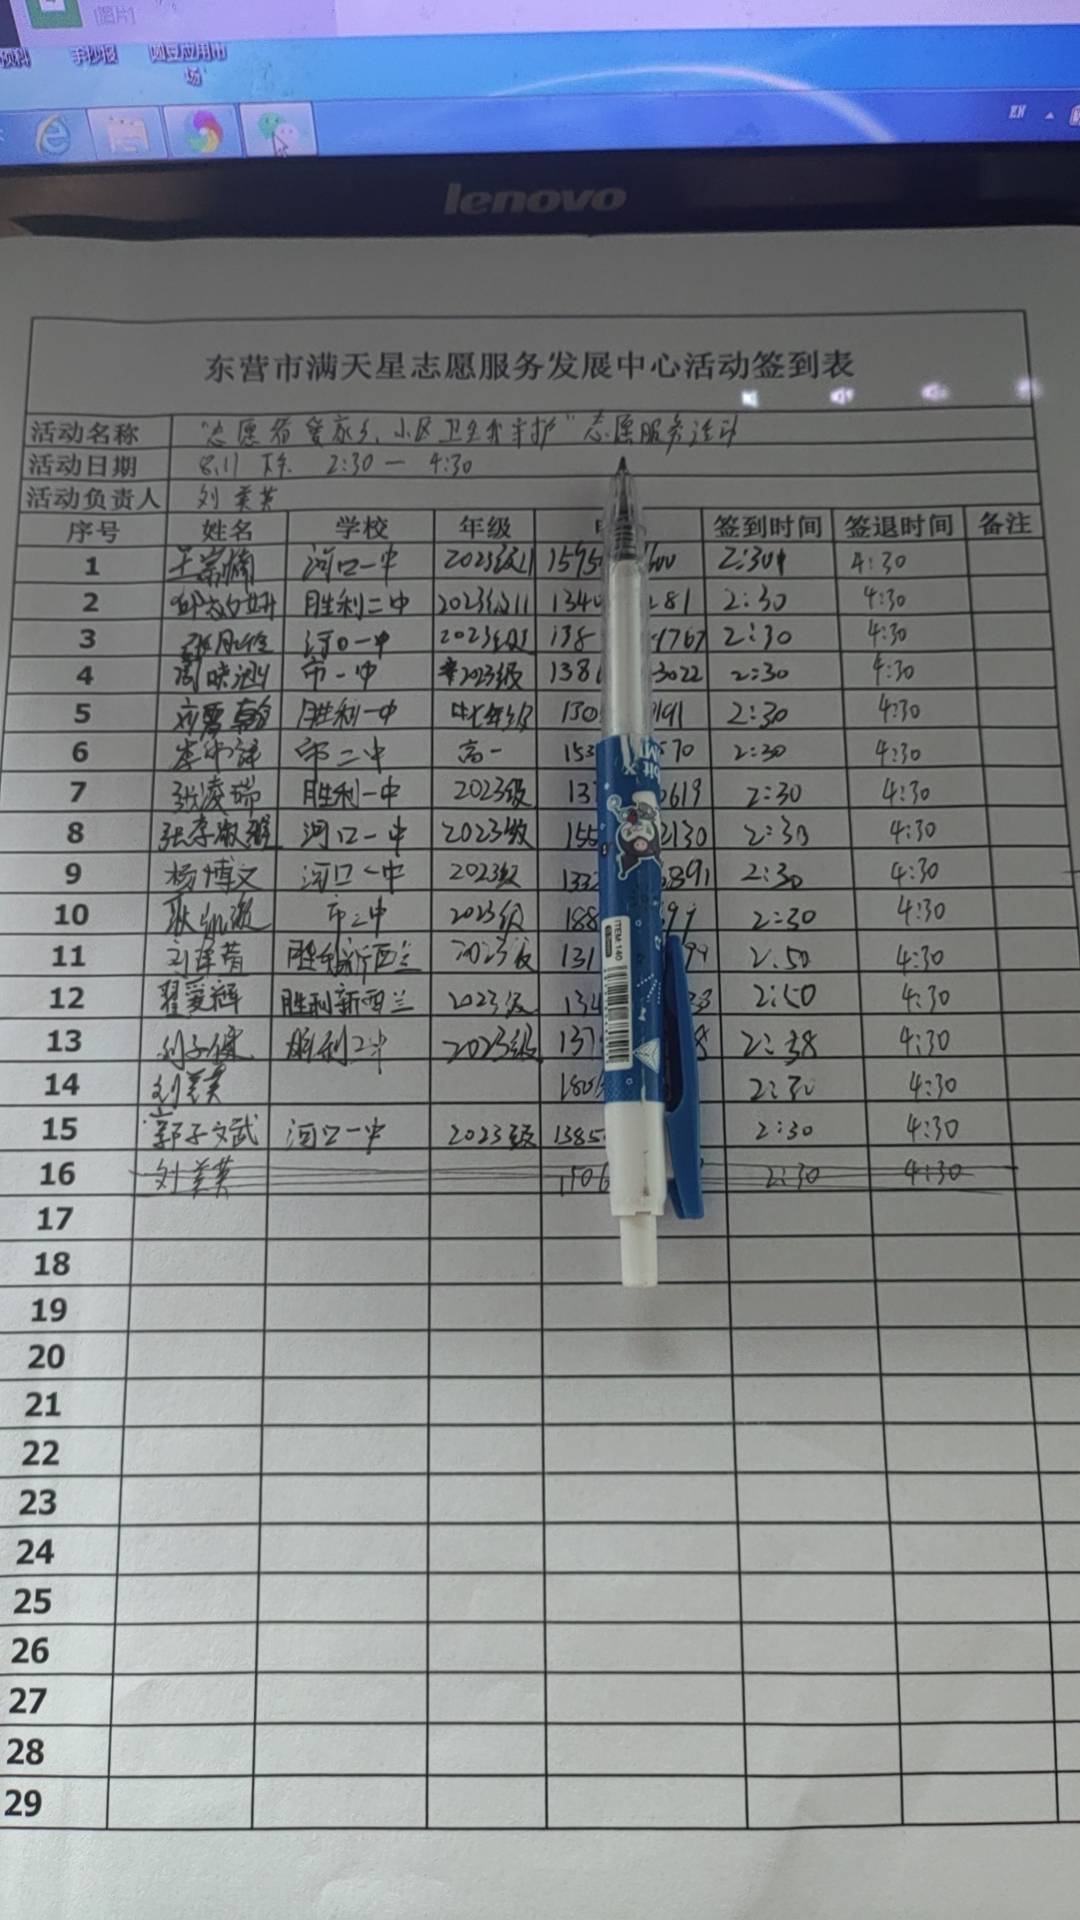 [图片]
预科 手抄报 豌豆应用市场
EN
lenovo
东营市满天星志愿服务发展中心活动签到表
活动名称 "志愿者爱家乡,小区卫生我守护"志愿服务活动
活动日期 8.11 下午 2:30 — 4:30
活动负责人 刘美英
序号 姓名 学校 年级 签到时间 签退时间 备注
1 河口一中 2023级11 1595 600 2:30 4:30
2 胜利二中 2023级11 1340 281 2:30 4:30
3 河口一中 2023级 138 4767 2:30 4:30
4 市一中 2023级 138 3022 2:30 4:30
5 胜利一中 七年级 130 191 2:30 4:30
6 市二中 高一 153 570 2:30 4:30
7 张凌瑞 胜利一中 2023级 13 0619 2:30 4:30
8 张李 河口一中 2023级 155 3130 2:30 4:30
9 杨博文 河口一中 2023级 133 5891 2:30 4:30
10 耿凯 市二中 2023级 188 2:30 4:30
11 胜利新西兰 2023级 131 99 2:50 4:30
12 翟爱辉 胜利新西兰 2023级 134 33 2:50 4:30
13 刘子健 胜利二中 2023级 137 8 2:38 4:30
14 刘美英 180 2:30 4:30
15 郭子文武 河口一中 2023级 1385 2:30 4:30
16 刘美英 2:30 4:30
17
18
19
20
21
22
23
24
25
26
27
28
29
ITEM 140